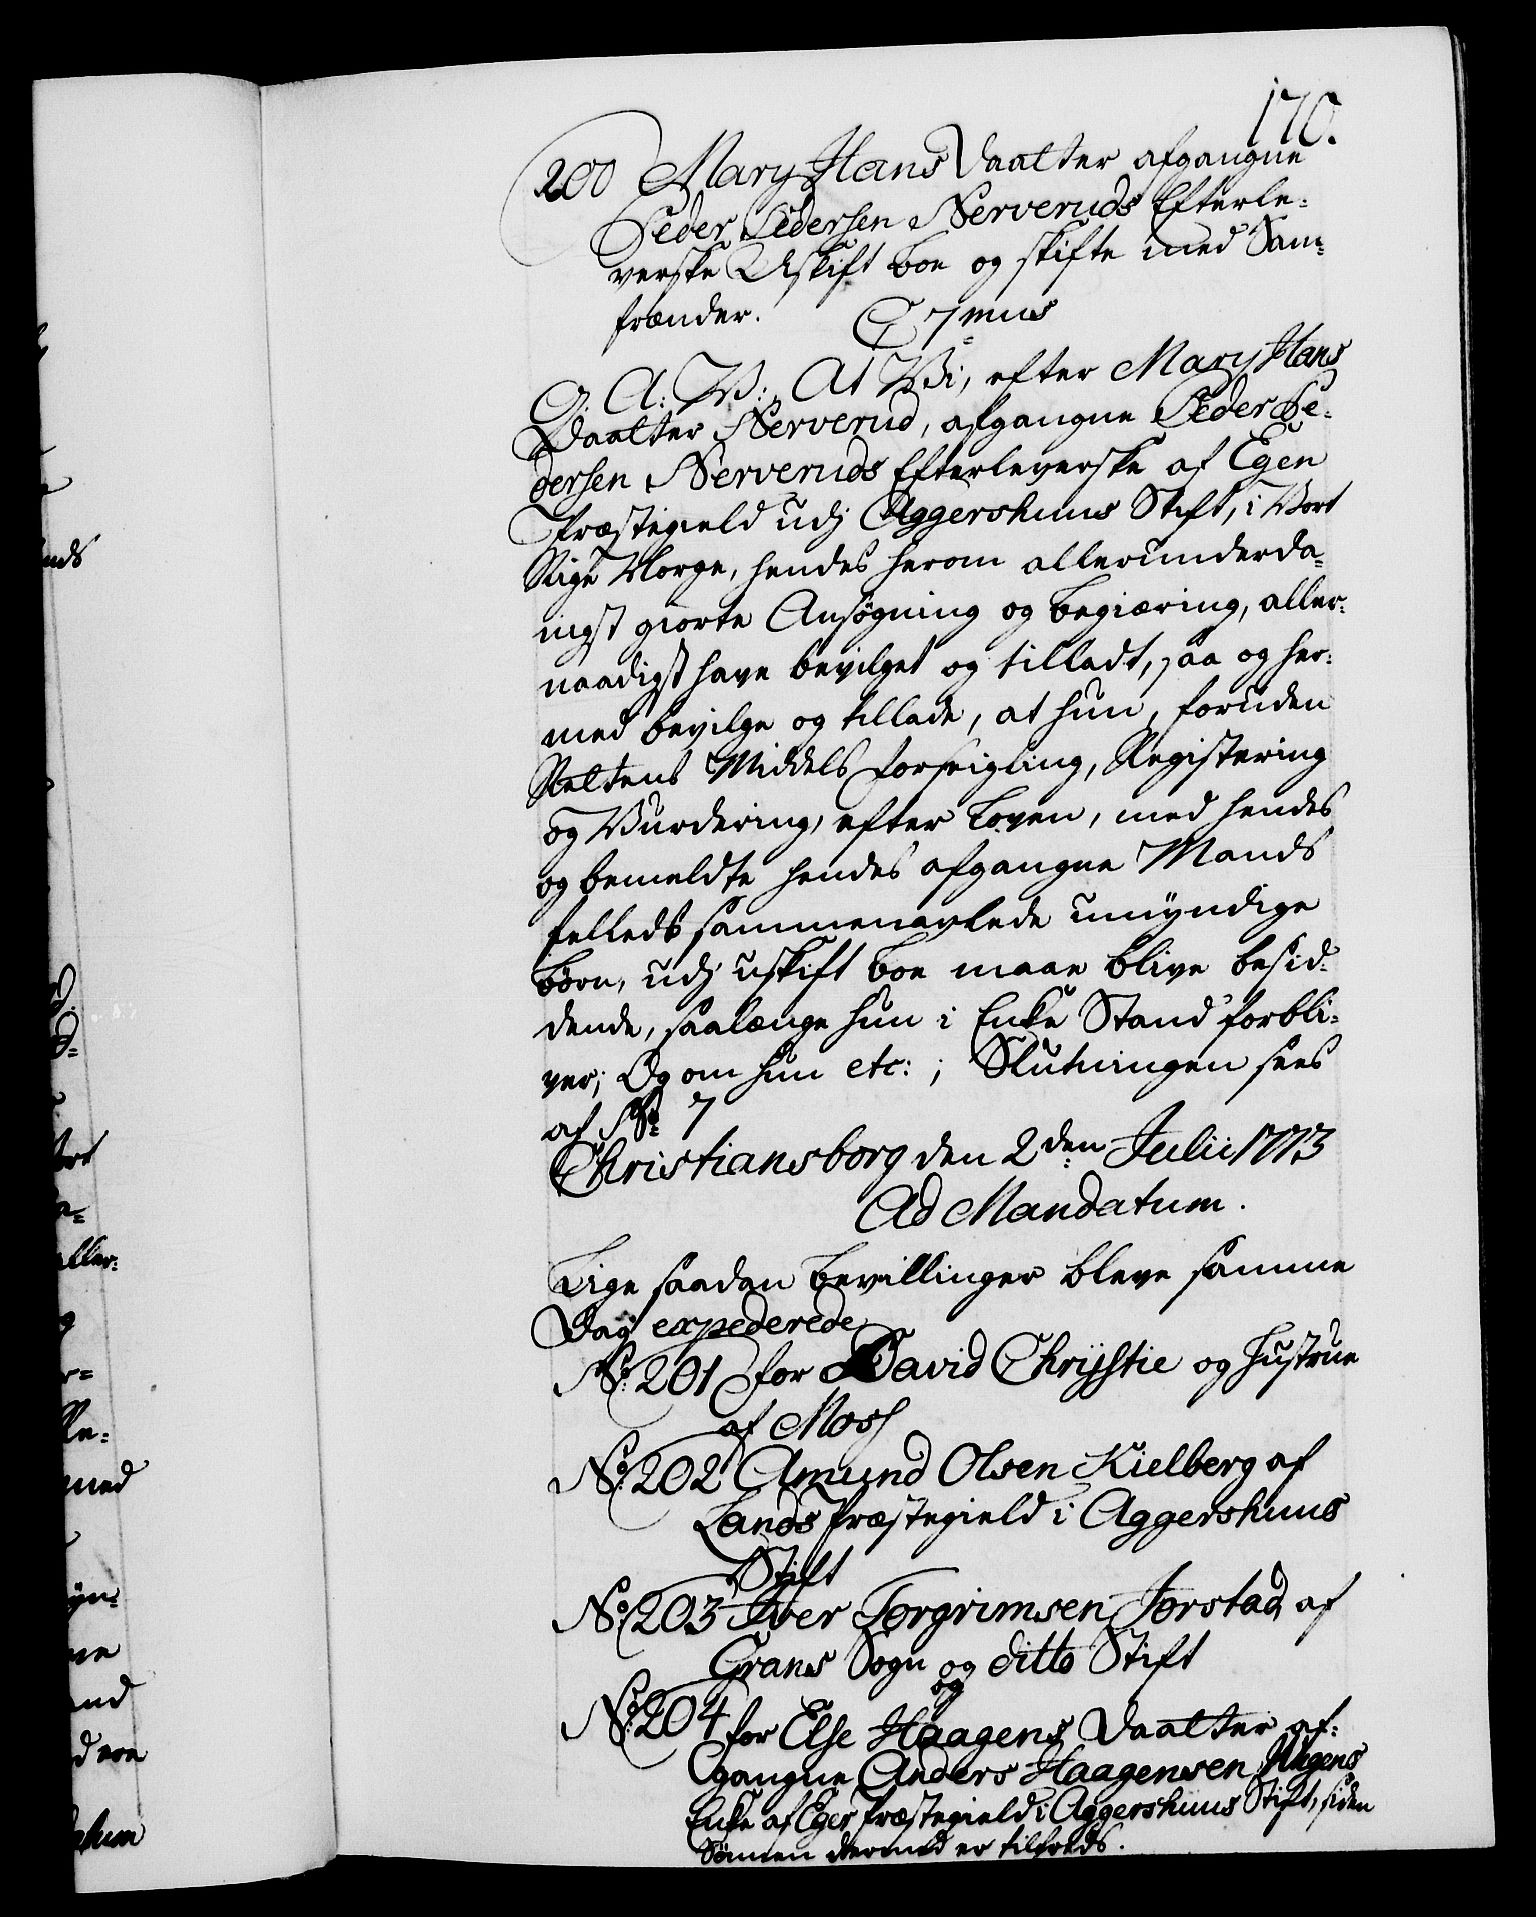 170.
200 Mary Hans Daatter afgangne
Peder Pedersen Nerveruds Efterle-
verske Uskift boe og skifte med Sam-
frænder. C 7mus
G: A: V: At Vi, efter Mary Hans
Daatter Nerverud, afgangne Peder Pe-
dersen Nerveruds Efterleverske af Egen
Præstegield udj Aggershuus Stift, i Vort
Rige Norge, hendes herom allerunderda-
nigst giorte Ansøgning og begiæring, aller-
naadigst have bevilget og tilladt, saa og her-
med bevilge og tillade, at hun, foruden
Rettens Middels forseigling, Registering
og Vurdering, efter Loven, med hendes
og bemeldte hendes afgangne Mands
felleds sammenavlede umyndige
børn, udj uskift boe maae blive besid-
dende, saalænge hun i Enke Stand forbli-
ver; Og om hun etc: ; Slutningen sees
af No 7
Christiansborg den 2den Julii 1773
Ad Mandatum.
Lige saadan bevillinger bleve samme
Dag expederede
No 201 for David Chrystie og hustrue
af Moss
No 202 Amund Olsen Kielberg af
Lands Præstegield i Aggershuus
Stift
No 203 Iver Torgrimsen Jorstad af
Grans Sogn og ditto Stift
og
No 204 for Else Haagens Daatter af-
gangne Anders Haagensen
Enke af Eger Præstegield i Aggershuus Stift, siden
Sönnen dermed er tilfreds.